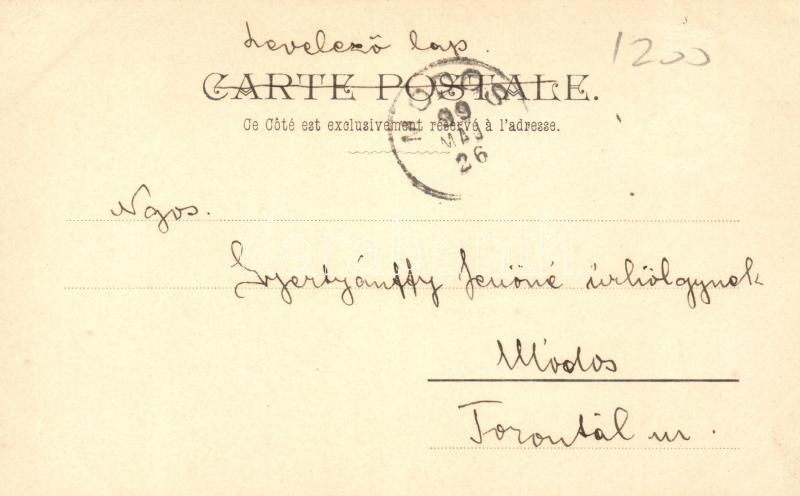 Levelező lap.
1200
CARTE POSTALE.
Ce Côté est exclusivement réservé à l'adresse.
MÓDOS
99
MAJ
26
Ngos.
Gyertyánffy Jenőné úrhölgynek
Módos
Torontál m.